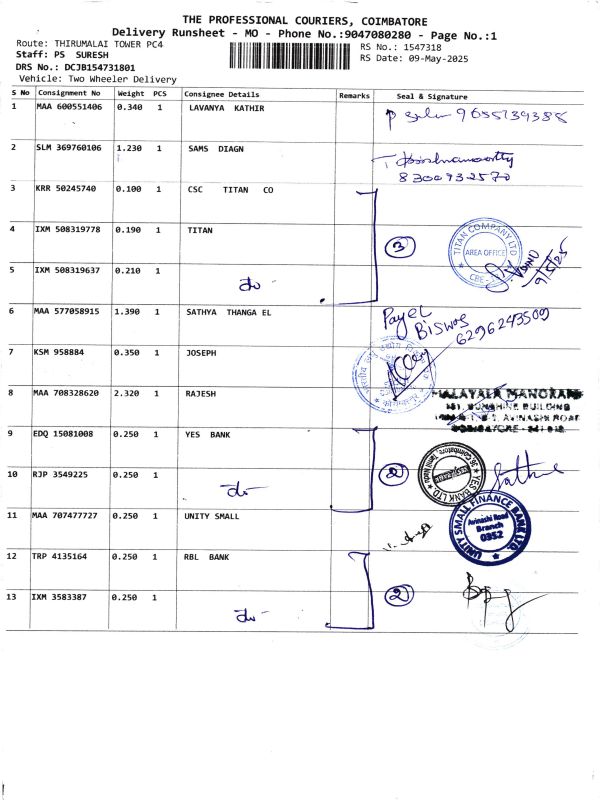 THE PROFESSIONAL COURIERS, COIMBATORE
Delivery Runsheet - MO - Phone No.:9047080280 - Page No.:1
Route: THIRUMALAI TOWER PC4
RS No.: 1547318
Staff: PS SURESH
RS Date: 09-May-2025
DRS No.: DCJB154731801
Vehicle: Two Wheeler Delivery
S No Consignment No Weight PCS Consignee Details Remarks Seal & Signature
1 MAA 600551406 0.340 1 LAVANYA KATHIR
9655739388
2 SLM 369760106 1.230 1 SAMS DIAGN
T Krishnamoorthy
8300932570
3 KRR 50245740 0.100 1 CSC TITAN CO
4 IXM 508319778 0.190 1 TITAN
3
TITAN COMPANY LTD
AREA OFFICE
CBE
9/5/25
5 IXM 508319637 0.210 1
6 MAA 577058915 1.390 1 SATHYA THANGA EL
Payel
Biswas
6296243509
7 KSM 958884 0.350 1 JOSEPH
8 MAA 708328620 2.320 1 RAJESH
MALAYALA MANORAMA
SUNSHINE BUILDING
AVINASHI ROAD
COIMBATORE
9 EDQ 15081008 0.250 1 YES BANK
10 RJP 3549225 0.250 1
2
YES BANK LTD.
Coimbatore, Tamil Nadu
11 MAA 707477727 0.250 1 UNITY SMALL
UNITY SMALL FINANCE BANK LTD.
Avinashi Road
Branch
0352
12 TRP 4135164 0.250 1 RBL BANK
13 IXM 3583387 0.250 1
2